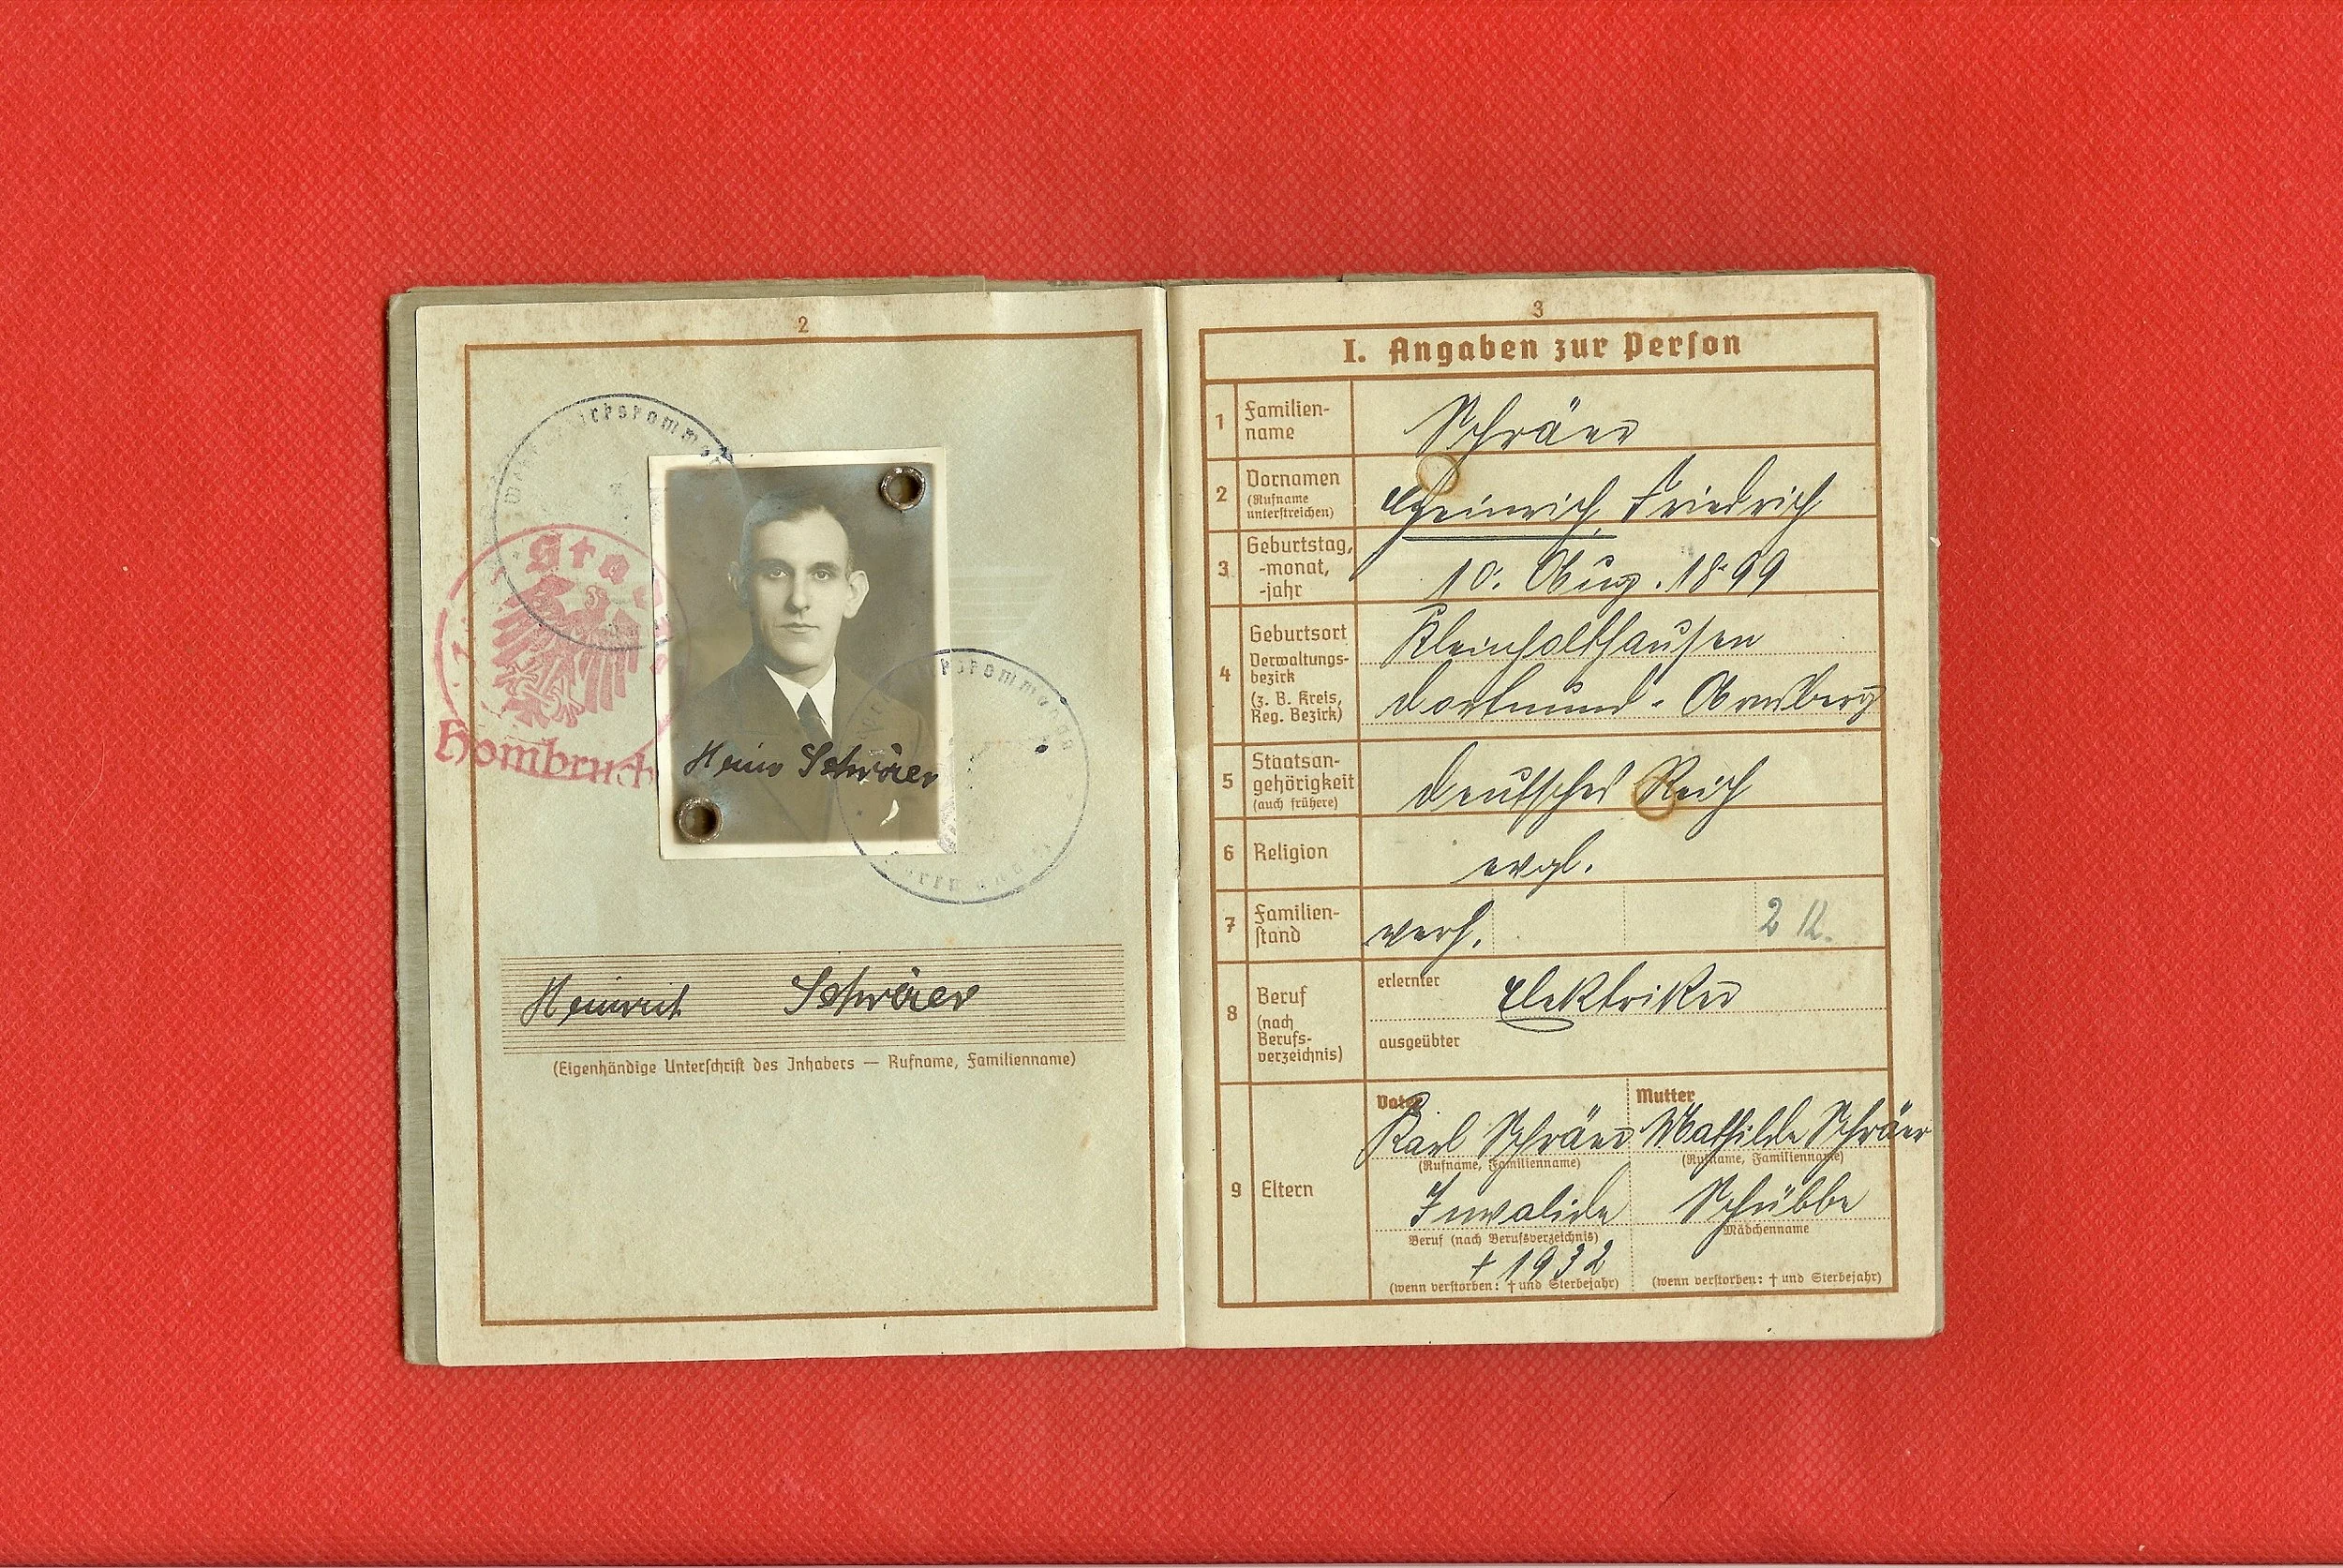 2
Stadt
Hombruch
Heinr Schräer
Heinrich Schräer
(Eigenhändige Unterschrift des Inhabers — Rufname, Familienname)
3
I. Angaben zur Person
1 Familien-
name
Schräer
2 Vornamen
(Rufname
unterstreichen)
Heinrich Friedrich
3 Geburtstag,
-monat,
-jahr
10. Aug. 1899
4 Geburtsort
Verwaltungs-
bezirk
(z. B. Kreis,
Reg. Bezirk)
Kleinholthausen
Dortmund - Arnsberg
5 Staatsan-
gehörigkeit
(auch frühere)
Deutsches Reich
6 Religion
evgl.
7 Familien-
stand
verh.
2
8 Beruf
(nach
Berufs-
verzeichnis)
erlernter
Elektriker
ausgeübter
9 Eltern
Vater
Karl Schräer
(Rufname, Familienname)
Invalide
Beruf (nach Berufsverzeichnis)
† 1932
(wenn verstorben: † und Sterbejahr)
Mutter
Mathilde Schräer
(Rufname, Familienname)
Schübbe
Mädchenname
(wenn verstorben: † und Sterbejahr)